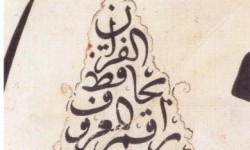 راقم المعروف
بحافظ
القرآن